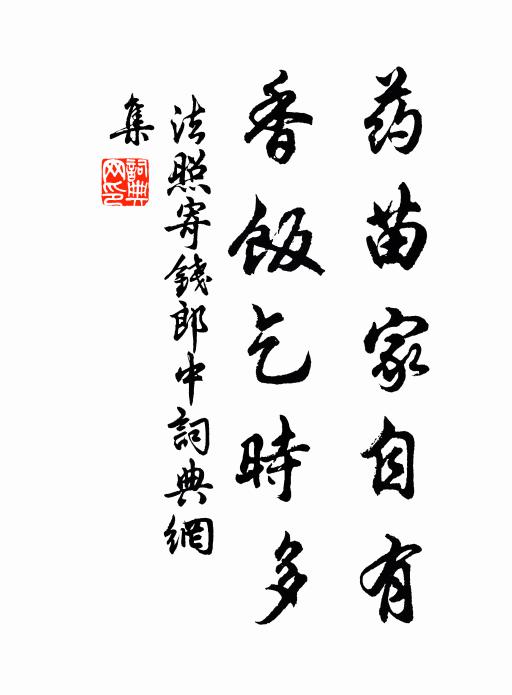 药苗家自有
香饭乞時多
法照寄錢郎中詞典網
集
詞典
网印